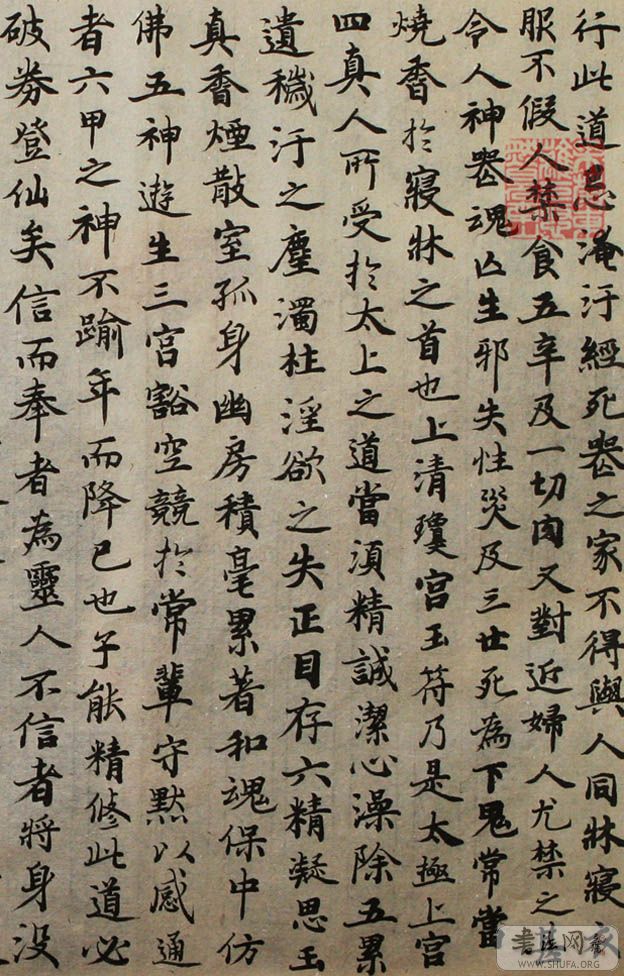 行此道忌淹汙經死喪之家不得與人同牀寢
服不假人禁食五辛及一切肉又對近婦人尤禁之
令人神喪魂亡生邪失性災及三世死為下鬼常當
燒香於寢牀之首也上清瓊宮玉符乃是太極上宮
四真人所受於太上之道當須精誠潔心澡除五累
遺穢汙之塵濁杜淫欲之失正目存六精凝思玉
真香煙散室孤身幽房積毫累著和魂保中仿
佛五神遊生三宮豁空競於常輩守默以感通
者六甲之神不踰年而降己也子能精修此道必
破券登仙矣信而奉者為靈人不信者將身沒
书法网
WWW.SHUFA.ORG